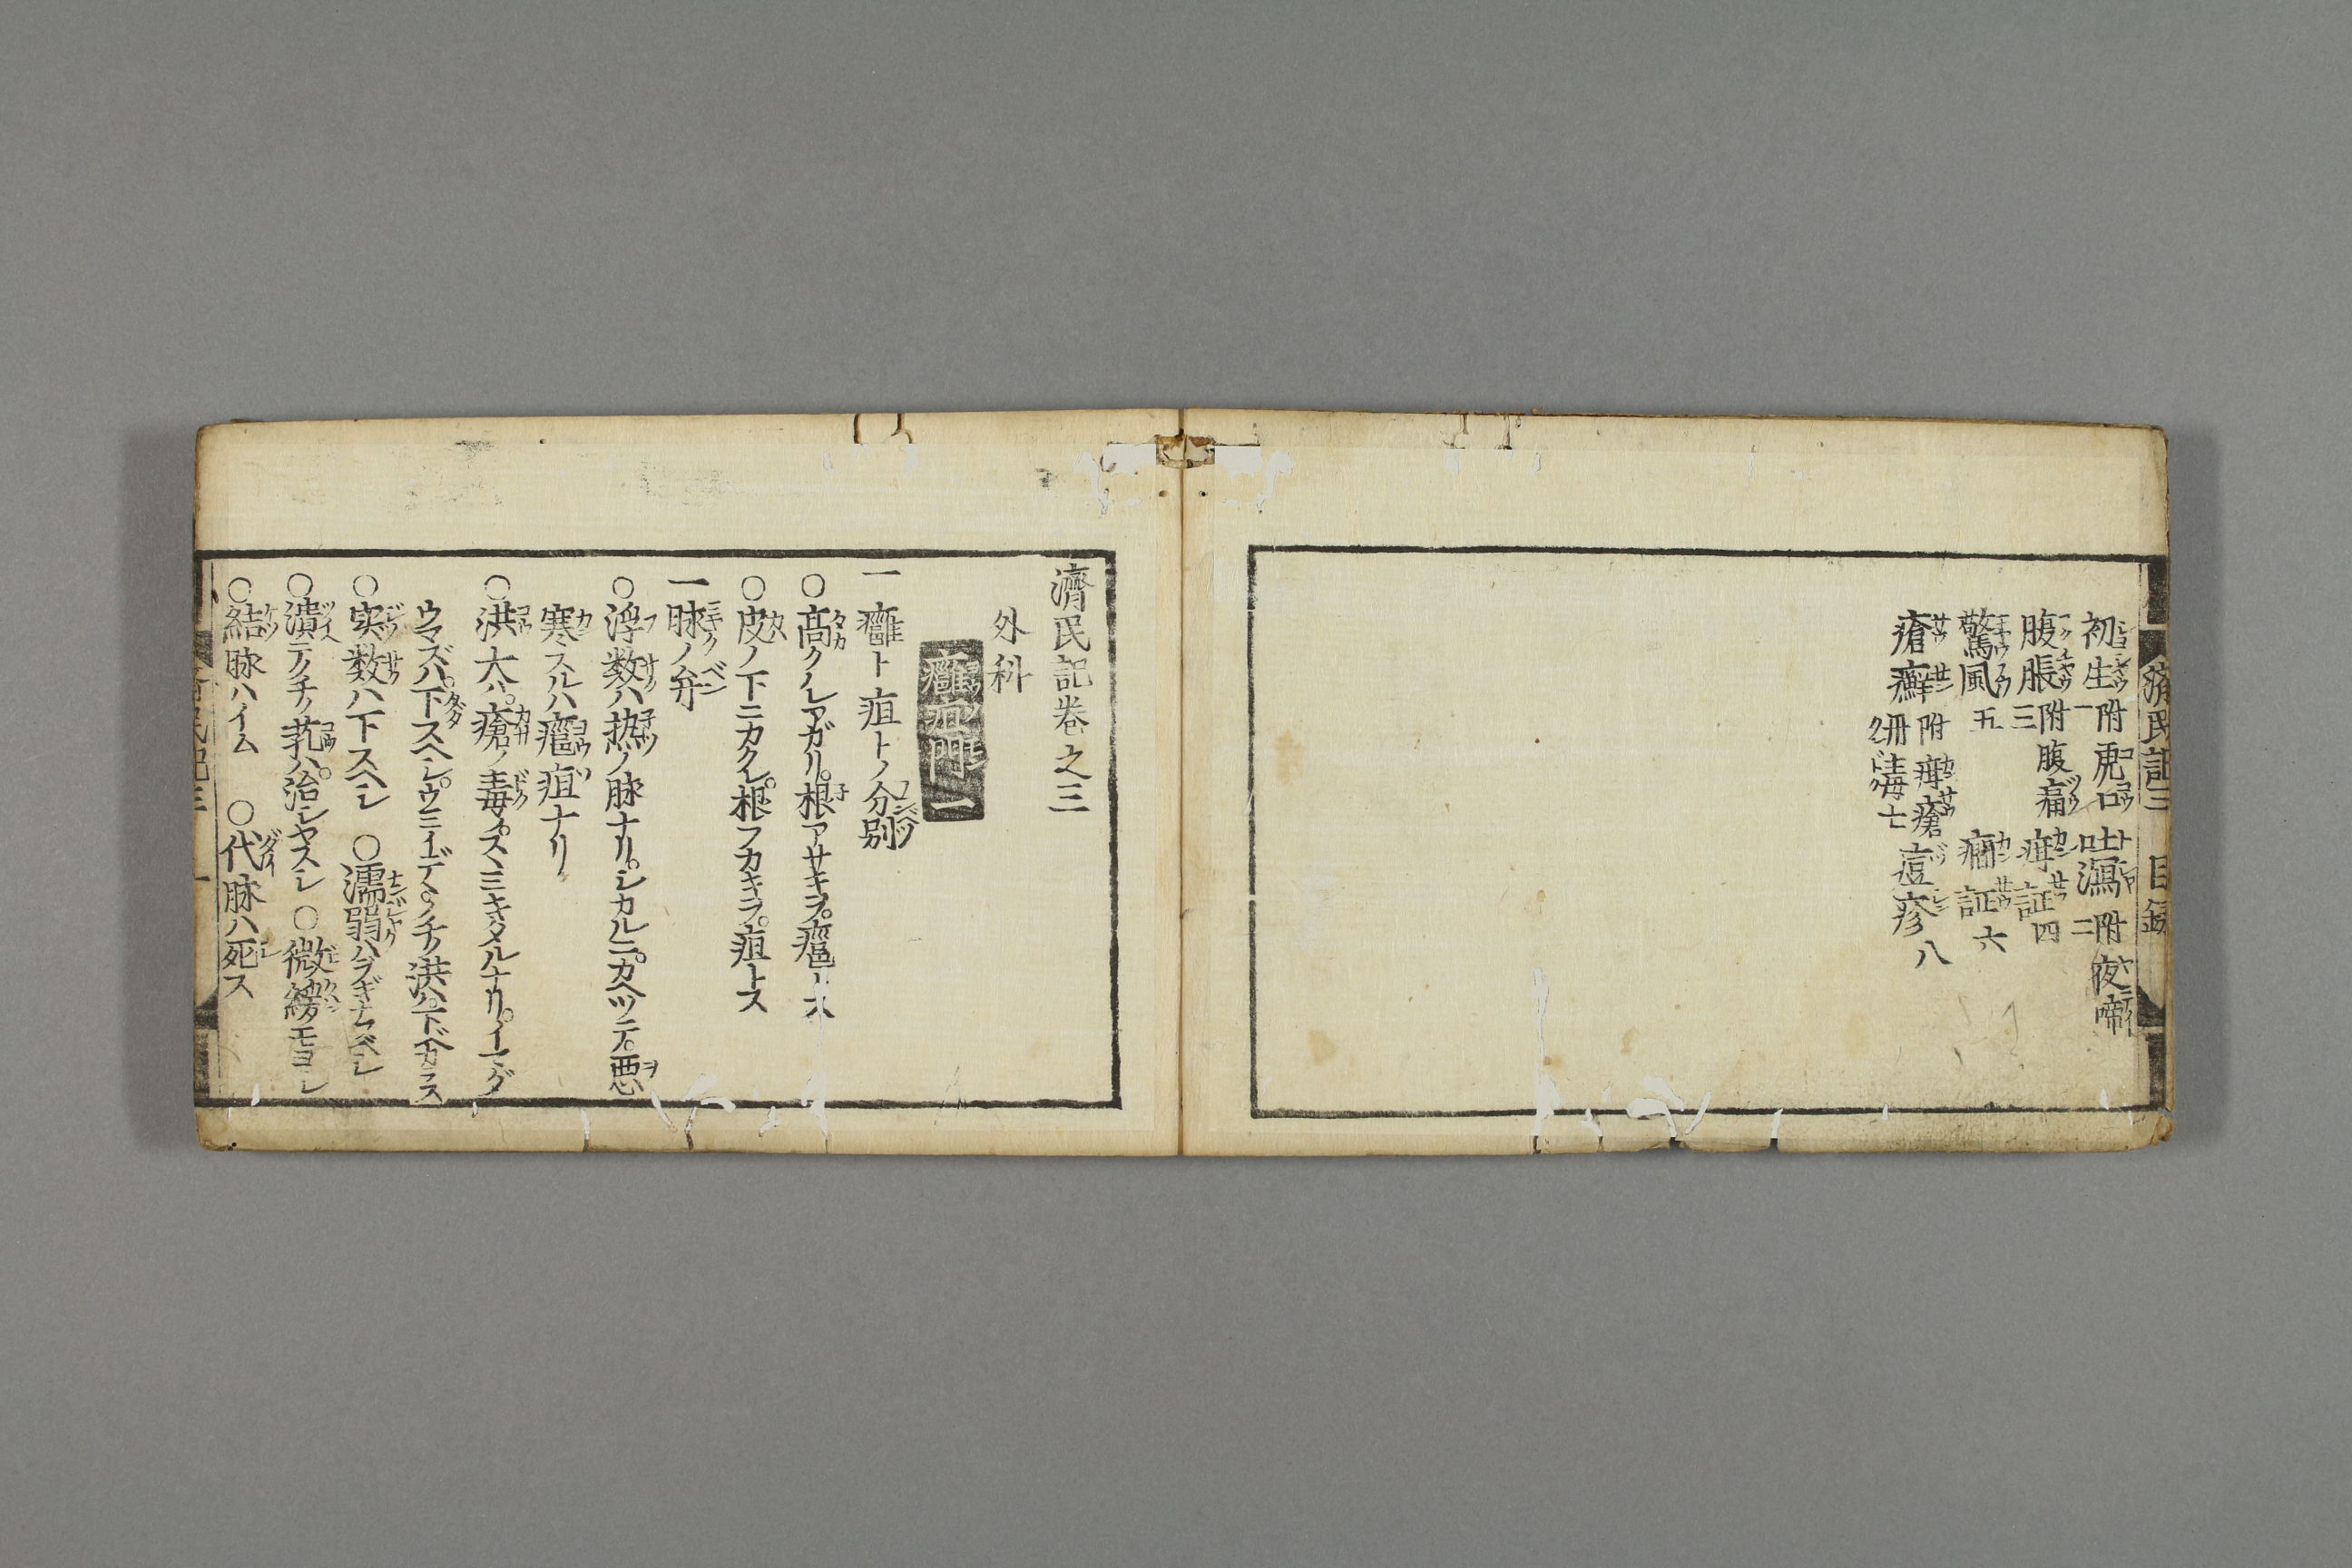 濟民記三 目録
初生一附虎口 吐瀉二附夜啼
腹脹三附腹痛 疳証四
驚風五 癇証六
瘡癬附疳瘡 丹毒七 痘疹八
濟民記巻之三
外科
癰疽門一
一癰ト疽トノ分別
○高クハレアガリ。根アサキヲ。癰トス
○皮ノ下ニカクレ。根フカキヲ。疽トス
一脉ノ弁
○浮数ハ熱ノ脉ナリ。シカルニ。カヘツテ。悪
寒スルハ癰疽ナリ
○洪大ハ。瘡ノ毒。スヽミキタルナリ。イマダ
ウマズハ。下スヘシ。ウミイデヽノチノ洪ハ。下ベカラス
○実数ハ下スヘシ ○濡弱ハヲギナフベシ
○潰テノチノ芤ハ。治シヤスシ ○微緩モヨシ
○結脉ハイム ○代脉ハ死ス